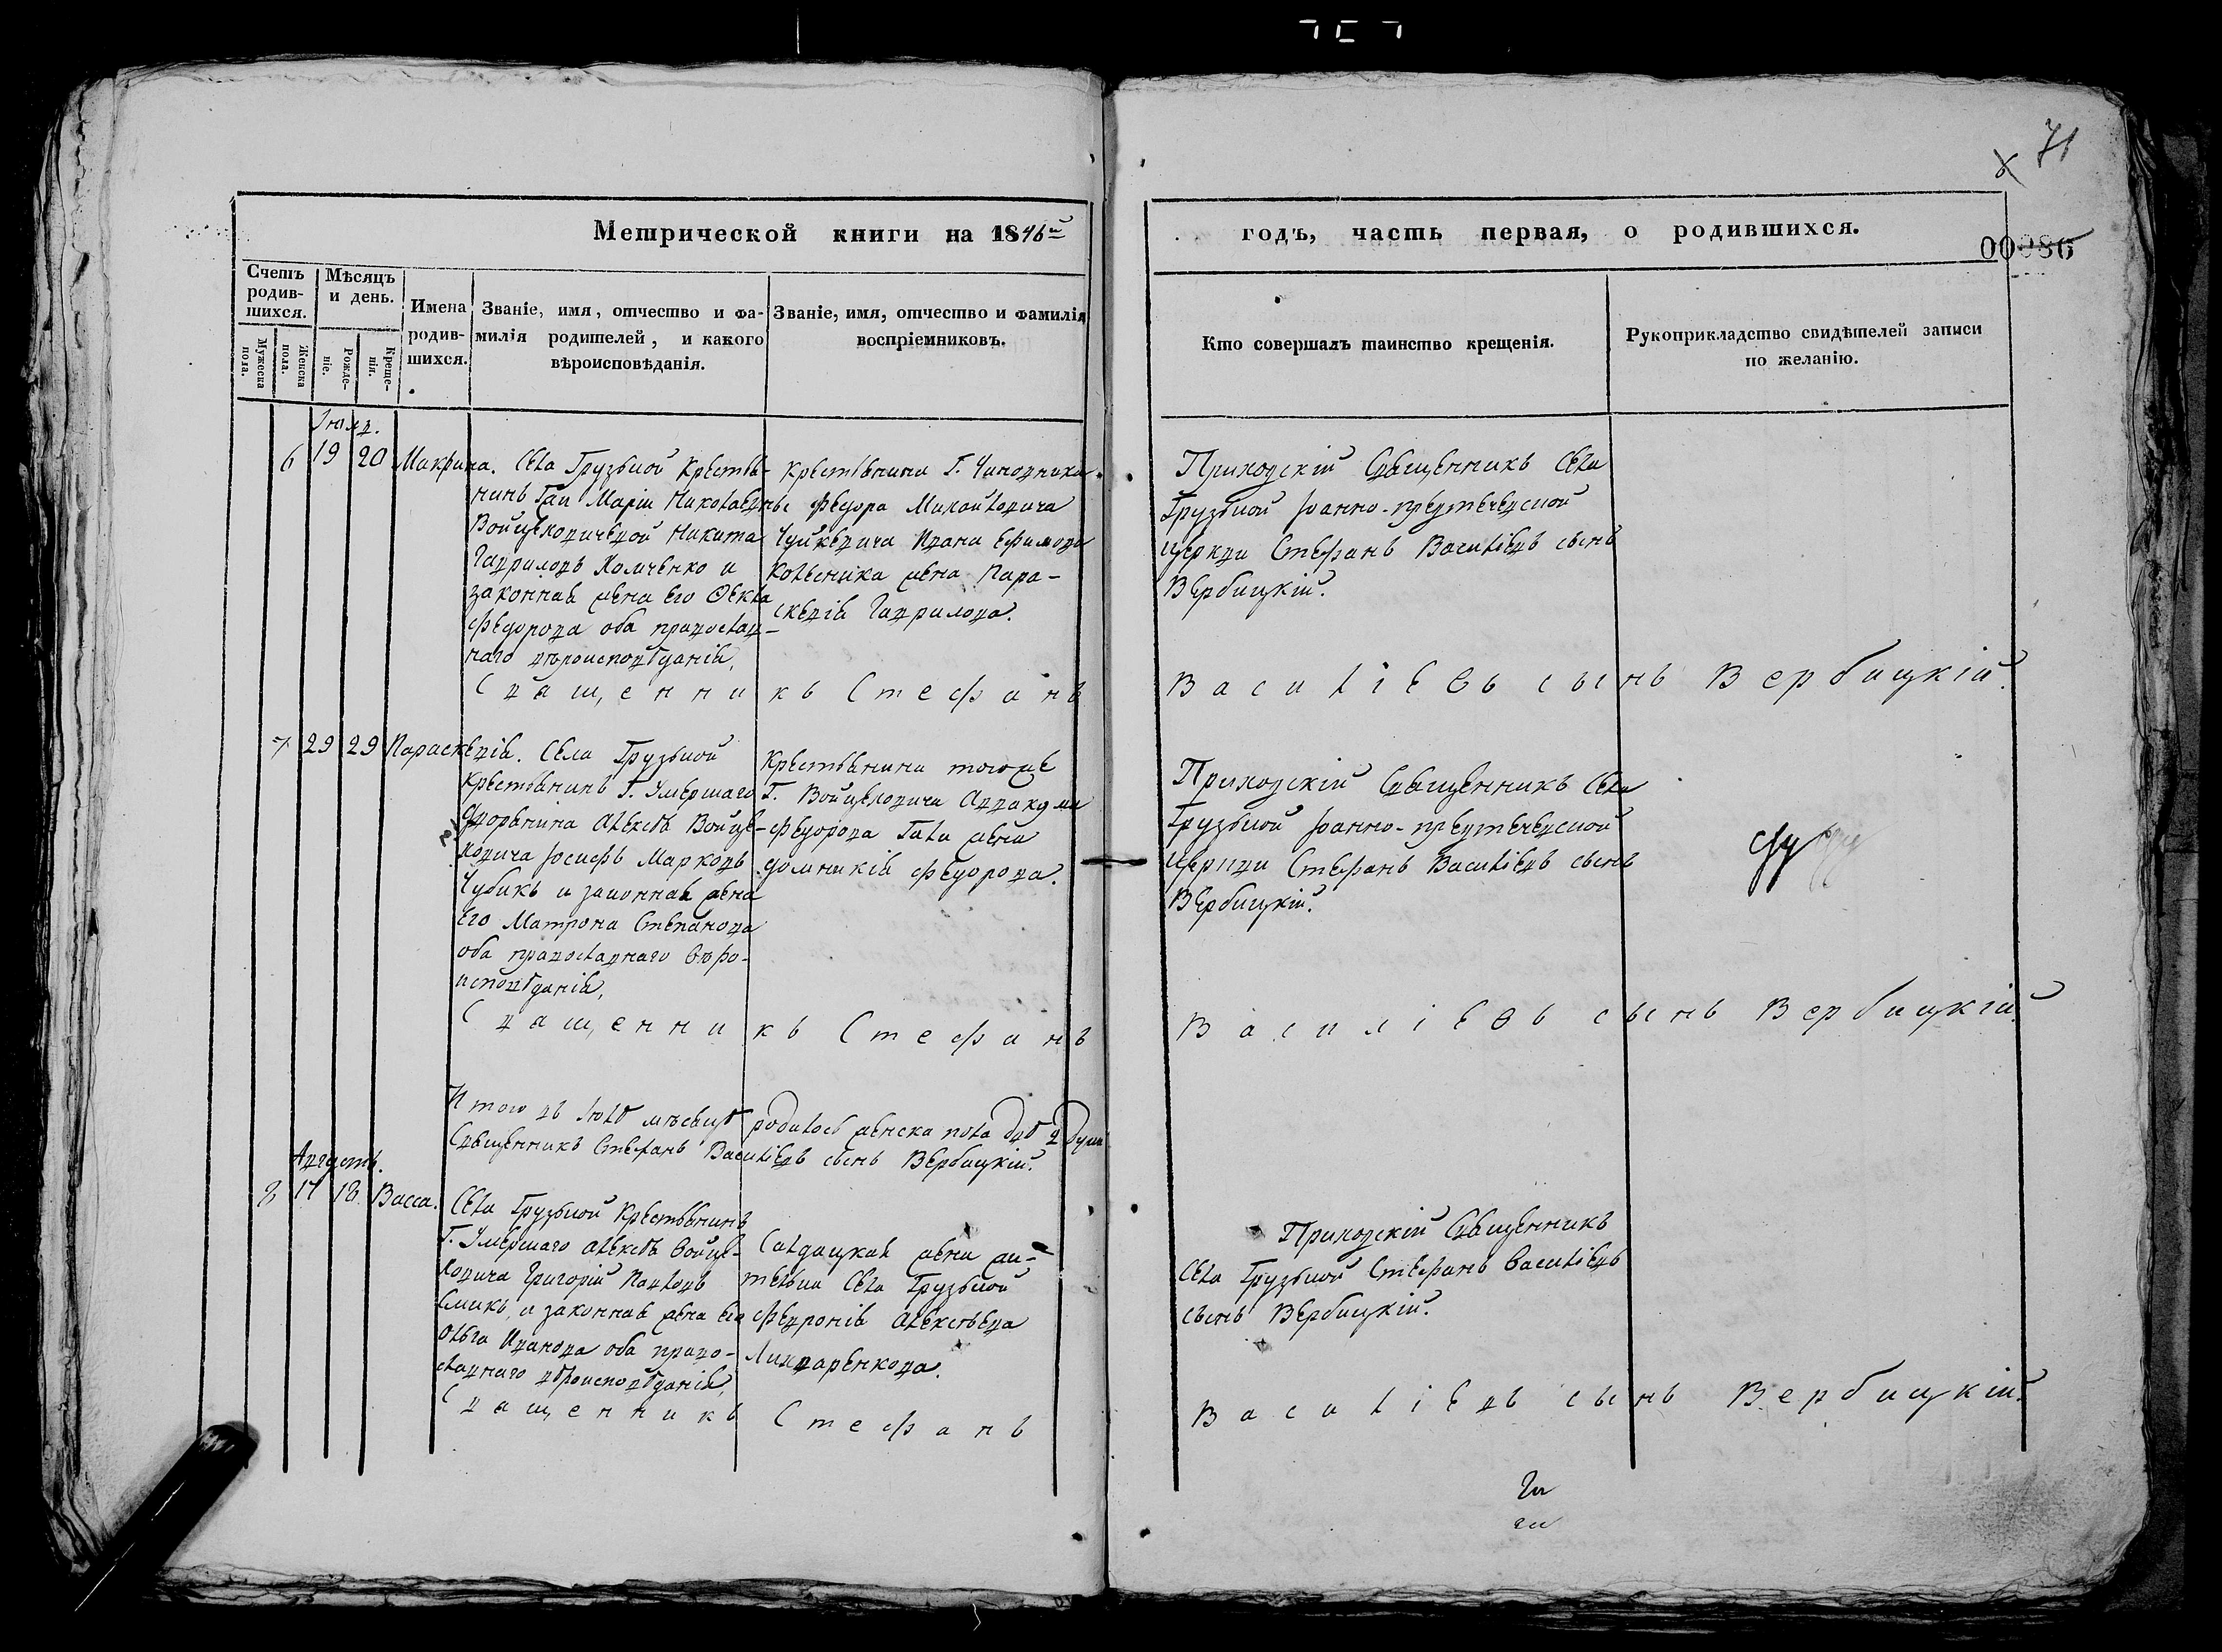 71
Метрической книги на 1846й
годъ, часть первая, о родившихся.
00086
Счетъ родив-шихся.
Мѣсяцъ и день.
Имена родив-шихся.
Званіе, имя, отчество и фа-
милія родителей, и какого
вѣроисповѣданія.
Званіе, имя, отчество и фамилія
воспріемниковъ.
Кто совершалъ таинство крещенія.
Рукоприкладство свидѣтелей записи
по желанію.
Мужеска пола.
Женска пола.
Рожде-ніе.
Креще-нія.
6 19 20 Макрина.
Села Грузской Крестья-
нинъ Г-жи Маріи Николаевны
Войцеховичевой Никита
Гавриловъ Холченко и
законная жена его Ѳекла
Федорова оба православ-
наго вѣроисповѣданія,
Крестьянина Г. Чиновника
Федора Михайловича
Чуйкевича Ивана Ефимова
Колесника жена Пара-
скевія Гаврилова.
Приходскій Священникъ Села
Грузской Іоанно-предтечевской
церкви Стефанъ Василіевъ сынъ
Вербицкій.
Священникъ Стефанъ Василіевъ сынъ Вербицкій.
7 29 29 Параскевія.
Села Грузской
Крестьянинъ Г. Умершаго
дворянина Алексѣя Войце-
ховича Іосифъ Марковъ
Чубикъ и законная жена
его Матрона Степанова
оба православнаго вѣро-
исповѣданія,
Крестьянина тогоже
Г. Войцеховича Аввакума
Федорова жена
домникія Федорова.
Приходскій Священникъ Села
Грузской Іоанно-предтечевской
церкви Стефанъ Василіевъ сынъ
Вербицкій.
Священникъ Стефанъ Василіевъ сынъ Вербицкій.
Итого въ Іюлѣ мѣсяцѣ родилось женска пола двѣ 2 души
Священникъ Стефанъ Василіевъ сынъ Вербицкій.
Августъ.
8 17 18 Васса.
Села Грузской Крестьянинъ
Г. Умершаго Алексѣя Войце-
ховича Григорій Павловъ
и законная жена его
Ольга Иванова оба право-
славнаго вѣроисповѣданія,
Солдацкая жена жи-
тельки Села Грузской
Февронія Алексѣева
Приходскій Священникъ
Села Грузской Стефанъ Василіевъ
сынъ Вербицкій.
Священникъ Стефанъ Василіевъ сынъ Вербицкій.